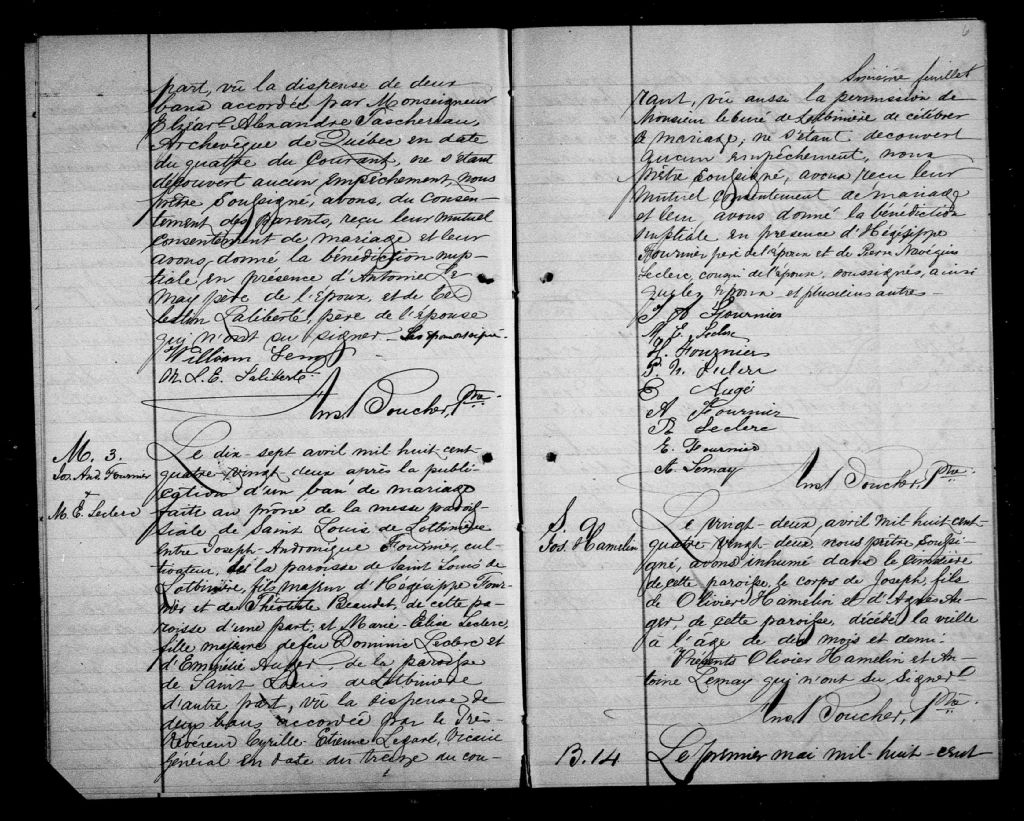 part, vû la dispense de deux
bans accordée par Monseigneur
Elzéar Alexandre Taschereau,
Archevêque de Québec en date
du quatre du Courant, ne s'étant
découvert aucun empêchement, nous
prêtre soussigné, avons, du consen-
tement des parents, reçu leur mutuel
consentement de mariage et leur
avons donné la bénédiction nup-
tiale en présence d'Antoine Le
may père de l'époux, et de Cé
lestin Laliberté, père de l'épouse
qui n'ont su signer. Les époux ont signé.
William Lemay
M. L. E. Laliberté
Ans. Boucher, Ptre.
M. 3.
Jos. And. Fournier
+
M. E. Leclerc
Le dix-sept avril mil huit cent
quatre-vingt-deux après la publi-
cation d'un ban de mariage
faite au prône de la messe parois-
siale de Saint Louis de Lotbinière
entre Joseph-Andronique Fournier, cul-
tivateur, de la paroisse de Saint Louis de
Lotbinière, fils majeur d'Hégésippe Four-
nier et de Théotiste Beaudet, de cette pa-
roisse d'une part, et Marie-Elise Leclerc,
fille majeure de feu Dominic Leclerc et
d'Emmélie Auger de la paroisse
de Saint Louis de Lotbinière
d'autre part, vû la dispense de
deux bans accordée par le Très
Révéreur Cyrille Etienne Légaré, Vicaire
Général en date du treize du cou-
6
Sixième feuillet
rant, vû aussi la permission de
Monsieur le Curé de Lotbinière de célébrer
ce mariage, ne s'étant découvert
aucun empêchement, nous
prêtre soussigné, avons reçu leur
mutuel consentement de mariage
et leur avons donné la bénédiction
nuptiale en présence d'Hégésippe
Fournier père de l'époux et de Pierre Navégius
Leclerc, cousin de l'époux, soussignés, ainsi
que les époux et plusieurs autres
J A Fournier
M. E. Leclerc
H. Fournier
P. N. Leclerc
E Augé
A Fournier
R Leclerc
E. Fournier
A. Lemay
Ans. Boucher, Ptre.
S. 9
Jos. Hamelin
Le vingt-deux, avril mil huit cent-
quatre vingt-deux, nous prêtre soussi-
gné, avons inhumé dans le cimetière
de cette paroisse, le corps de Joseph, fils
de Olivier Hamelin et d'Agnès An-
ger, de cette paroisse, décédé la veille
à l'âge de dix mois et demi.
Présents Olivier Hamelin et An-
toine Lemay qui n'ont su signer
Ans. Boucher, Ptre.
B. 14
Le premier mai mil-huit-cent